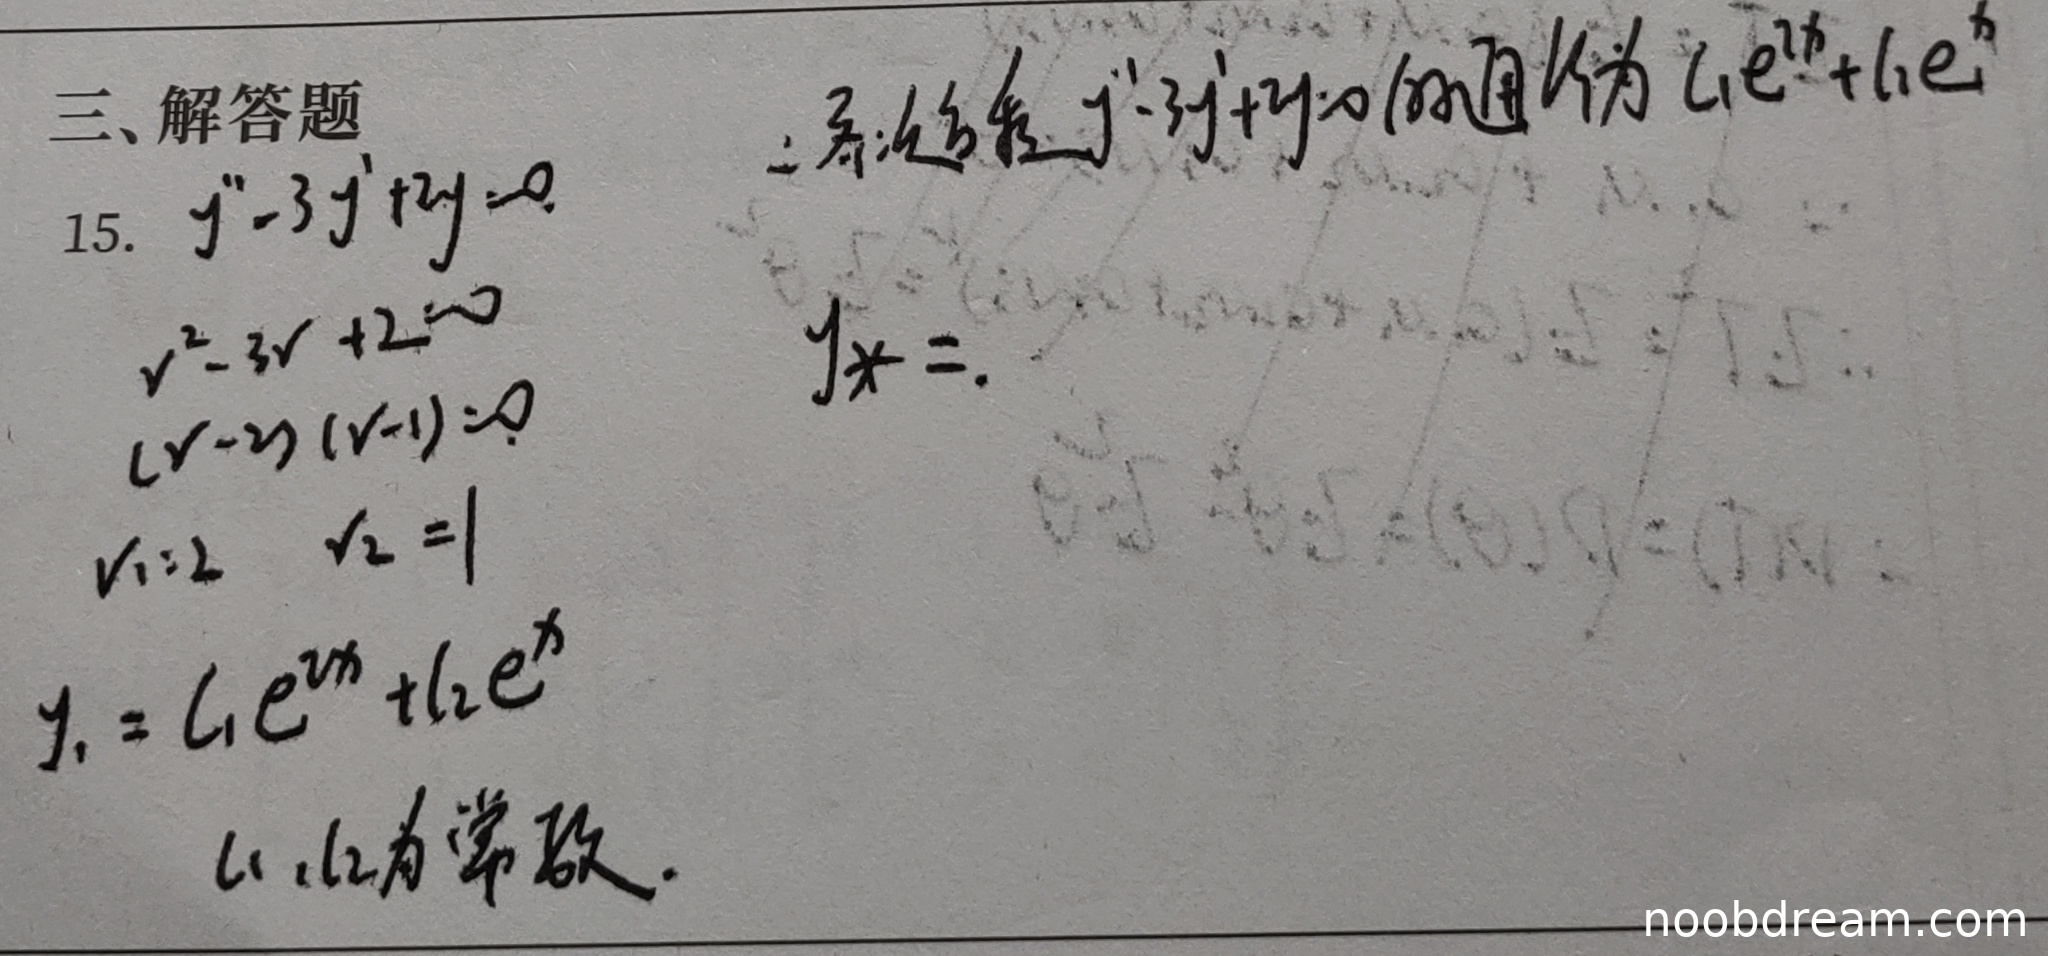 三、解答题
15. y'' - 3y' + 2y = 0.
r² - 3r + 2 = 0
(r - 2)(r - 1) = 0.
r₁ = 2 r₂ = 1
y₁ = C₁e^{2x} + C₂e^{x}
C₁, C₂为常数.
∴齐次方程 y'' - 3y' + 2y = 0 的通解为 C₁e^{2x} + C₁e^{x}
y* = .
noobdream.com